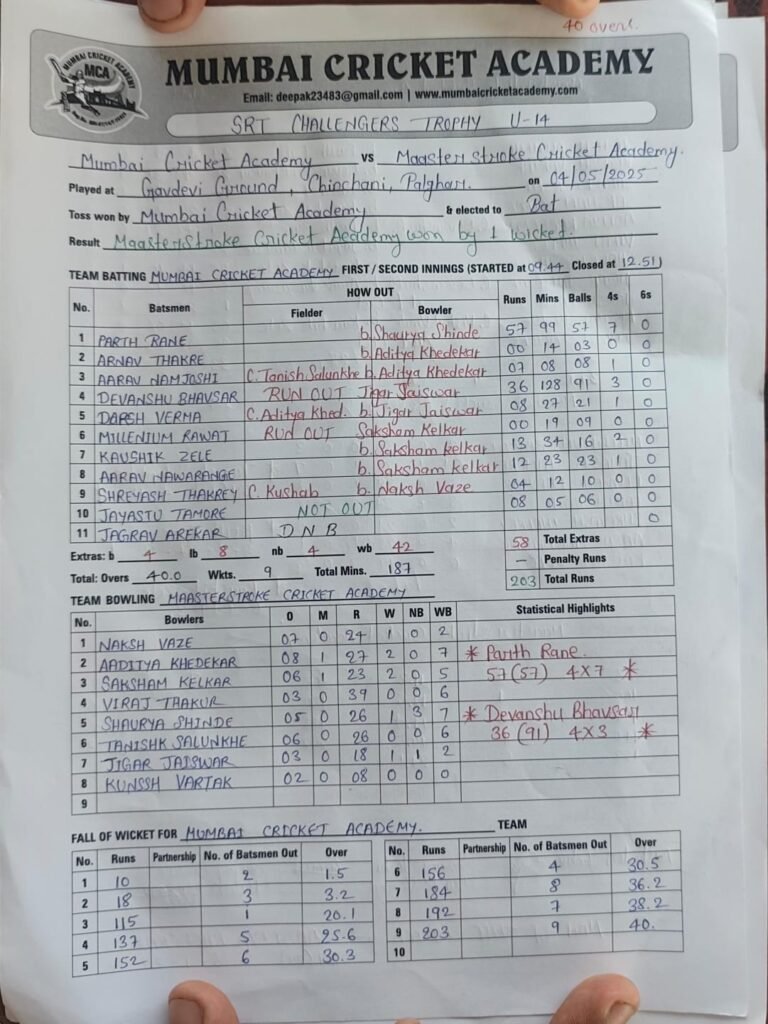 40 overs.
MUMBAI CRICKET ACADEMY
MCA
MUMBAI CRICKET ACADEMY
Email: deepak23483@gmail.com | www.mumbaicricketacademy.com
SRT CHALLENGERS TROPHY U-14
Mumbai Cricket Academy vs MaasterStroke Cricket Academy.
Played at Gavdevi Ground, Chinchani, Palghar. on 04/05/2025
Toss won by Mumbai Cricket Academy & elected to Bat
Result MaasterStroke Cricket Academy won by 1 wicket.
TEAM BATTING MUMBAI CRICKET ACADEMY FIRST / SECOND INNINGS (STARTED at 09.44 Closed at 12.51)
No. Batsmen HOW OUT Fielder Bowler Runs Mins Balls 4s 6s
1 PARTH RANE b. Shaurya Shinde 57 99 57 7 0
2 ARNAV THAKRE b. Aditya Khedekar 00 14 03 0 0
3 AARAV NAMJOSHI C. Tanish Salunkhe b. Aditya Khedekar 07 08 08 1 0
4 DEVANSHU BHAVSAR RUN OUT Jigar Jaiswar 36 128 91 3 0
5 DARSH VERMA C. Aditya Khed. b. Jigar Jaiswar 08 27 21 1 0
6 MILLENIUM RAWAT RUN OUT Saksham Kelkar 00 19 09 0 0
7 KAUSHIK ZELE b. Saksham kelkar 13 34 16 2 0
8 AARAV NAWARANGE b. Saksham kelkar 12 23 23 1 0
9 SHREYASH THAKREY C. Kushab b. Naksh Vaze 04 12 10 0 0
10 JAYASTU TAMORE NOT OUT 08 05 06 0 0
11 JAGRAV AREKAR D N B 0
Extras: b 4 lb 8 nb 4 wb 42 58 Total Extras
Total: Overs 40.0 Wkts. 9 Total Mins. 187 — Penalty Runs
203 Total Runs
TEAM BOWLING MAASTERSTROKE CRICKET ACADEMY
No. Bowlers O M R W NB WB Statistical Highlights
1 NAKSH VAZE 07 0 24 1 0 2
2 AADITYA KHEDEKAR 08 1 27 2 0 7 * Parth Rane.
3 SAKSHAM KELKAR 06 1 23 2 0 5 57(57) 4X7 *
4 VIRAJ THAKUR 03 0 39 0 0 6
5 SHAURYA SHINDE 05 0 26 1 3 7 * Devanshu Bhavsar
6 TANISHK SALUNKHE 06 0 26 0 0 6 36 (91) 4X3 *
7 JIGAR JAISWAR 03 0 18 1 1 2
8 KUNSSH VARTAK 02 0 08 0 0 0
9
FALL OF WICKET FOR MUMBAI CRICKET ACADEMY. TEAM
No. Runs Partnership No. of Batsmen Out Over No. Runs Partnership No. of Batsmen Out Over
1 10 2 1.5 6 156 4 30.5
2 18 3 3.2 7 184 8 36.2
3 115 1 20.1 8 192 7 38.2
4 137 5 25.6 9 203 9 40.
5 152 6 30.3 10